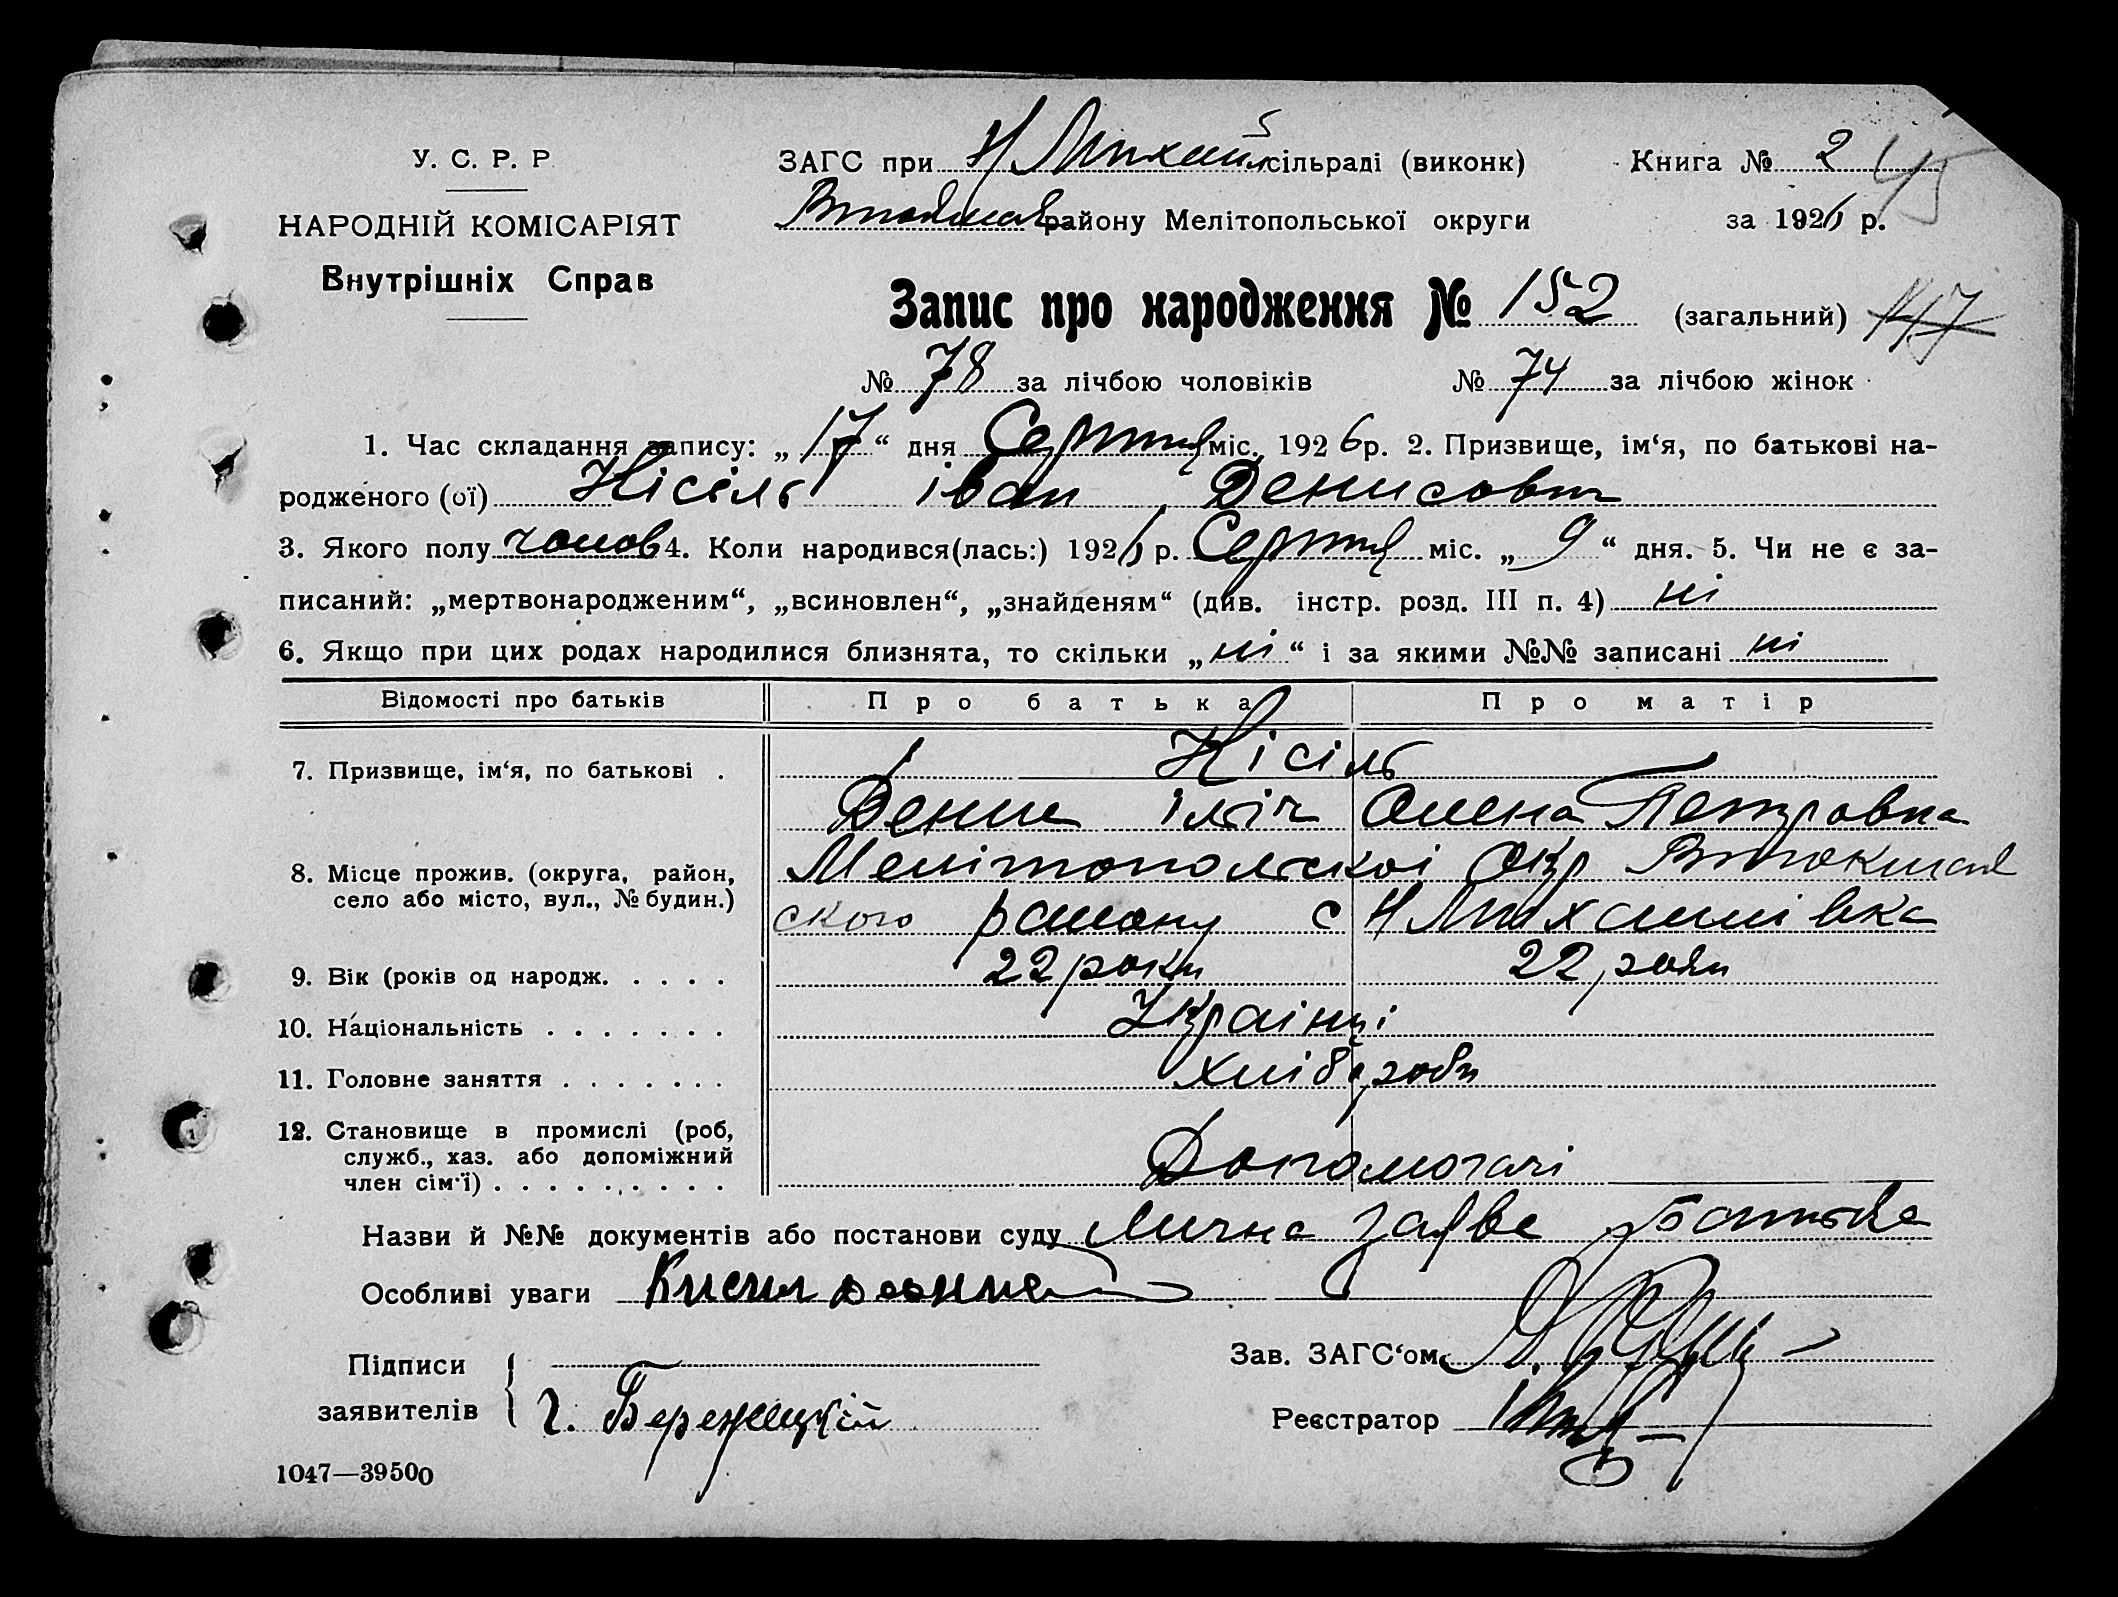 У. С. Р. Р.
НАРОДНІЙ КОМІСАРІЯТ
Внутрішніх Справ
ЗАГС при Н Михай сільраді (виконк)
району Мелітопольської округи
Книга № 2 45
за 1926 р.
Запис про народження № 152 (загальний) 147
№ 78 за лічбою чоловіків № 74 за лічбою жінок
1. Час складання запису: „ 17 “ дня Серпня міс. 1926 р. 2. Призвище, ім‘я, по батькові на-
родженого (ої) Кісіль іван Денисович
3. Якого полу чолов 4. Коли народився(лась:) 1926 р. Серпня міс. „ 9 “ дня. 5. Чи не є за-
писаний: „мертвонародженим“, „всиновлен“, „знайденям“ (див. інстр. розд. III п. 4) ні
6. Якщо при цих родах народилися близнята, то скільки „ ні “ і за якими №№ записані ні
Відомості про батьків Про батька Про матір
7. Призвище, ім‘я, по батькові . Кісіль
Денис ілліч Олена Петровна
8. Місце прожив. (округа, район, Мелітопольскоі Окр
село або місто, вул., № будин.) ского району с Н Михайлівка
9. Вік (років од народж. . . . . 22 роки 22 роки
10. Національність . . . . . . . Українці
11. Головне заняття . . . . . . . хлібороби
12. Становище в промислі (роб,
служб., хаз. або допоміжний
член сім‘ї) . . . . . . . . . Допомогачі
Назви й №№ документів або постанови суду Лична заява Батька
Особливі уваги Кисил
Підписи
заявителів Г. Бережецкій
Зав. ЗАГС‘ом
Реєстратор
1047—39500